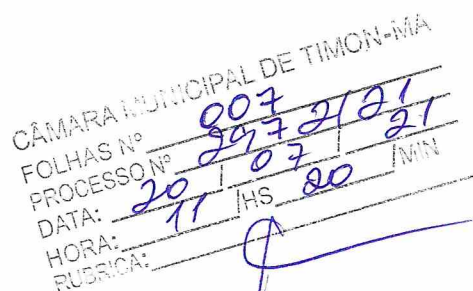 CÂMARA MUNICIPAL DE TIMON-MA
FOLHAS Nº 007
PROCESSO Nº 2972/21
DATA: 20 / 07 / 21
HORA: 11 HS 20 MIN
RUBRICA: